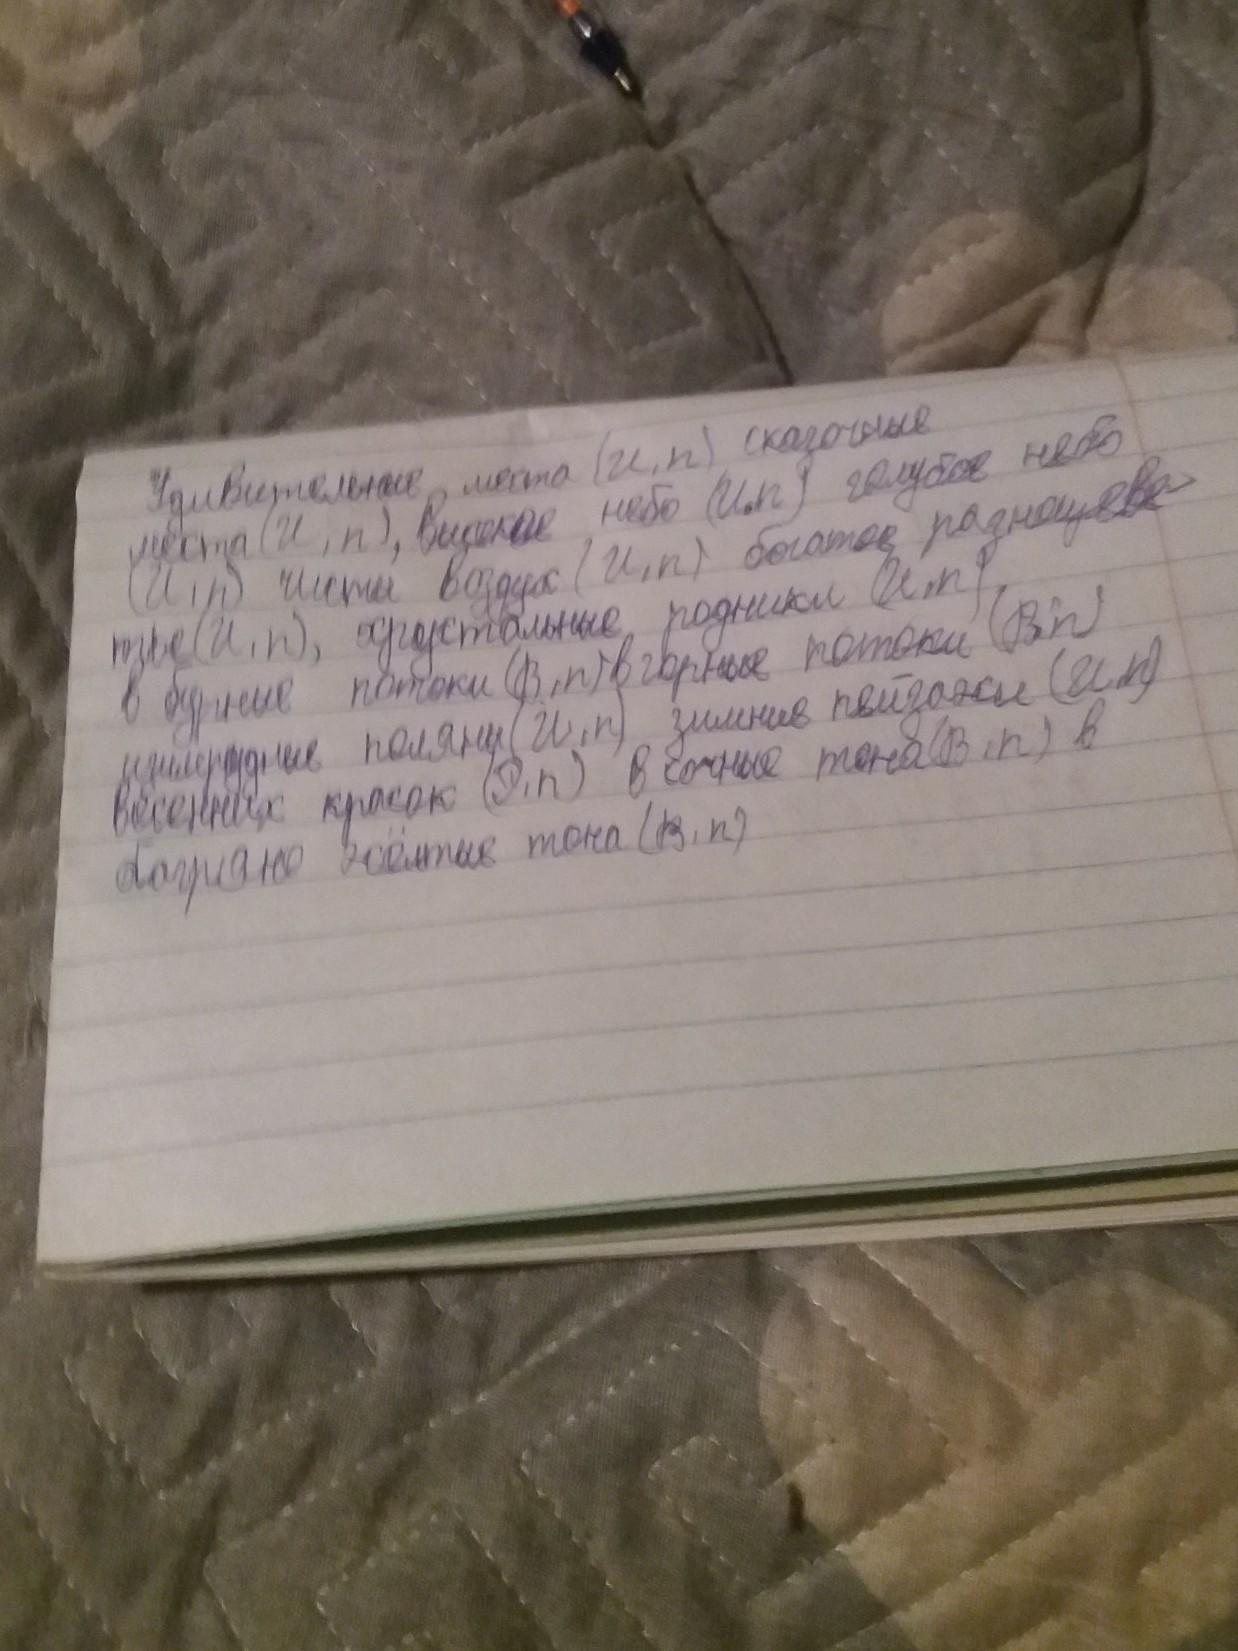 Удивительные места (И, п) сказочные
места (И, п), высокое небо (И.п) голубое небо
(И, п) чисты воздух (И, п) богатое разноцве-
тие (И, п), хрустальные родники (И, п),
в бурные потоки (В, п) в горные потоки (В.п)
изумрудные поляны (И, п) зимние пейзажи (И, п)
весенних красок (Р, п) в сочные тона (В, п) в
багряно жёлтые тона (В, п)